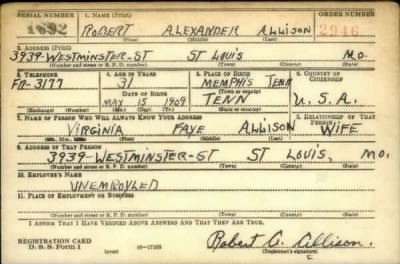 SERIAL NUMBER 1. NAME (Print) ORDER NUMBER
1692 ROBERT ALEXANDER ALLISON 2946
(First) (Middle) (Last)
2. ADDRESS (Print)
3939-WESTMINSTER-ST ST LOUIS MO.
(Number and street or R. F. D. number) (Town) (County) (State)
3. TELEPHONE 4. AGE IN YEARS 5. PLACE OF BIRTH 6. COUNTRY OF CITIZENSHIP
FR-3177 31 MEMPHIS TENN
DATE OF BIRTH (Town or county)
MAY 15 1909 TENN U.S.A.
(Exchange) (Number) (Mo.) (Day) (Yr.) (State or country)
7. NAME OF PERSON WHO WILL ALWAYS KNOW YOUR ADDRESS 8. RELATIONSHIP OF THAT PERSON
VIRGINIA FAYE ALLISON WIFE
(Mr., Mrs., Miss) (First) (Middle) (Last)
9. ADDRESS OF THAT PERSON
3939-WESTMINSTER-ST ST LOUIS, MO.
(Number and street or R. F. D. number) (Town) (County) (State)
10. EMPLOYER'S NAME
UNEMPLOYED
11. PLACE OF EMPLOYMENT OR BUSINESS
(Number and street or R. F. D. number) (Town) (County) (State)
I AFFIRM THAT I HAVE VERIFIED ABOVE ANSWERS AND THAT THEY ARE TRUE.
REGISTRATION CARD
D. S. S. FORM 1 (over) 16-17105 Robert A. Allison.
(Registrant's signature)